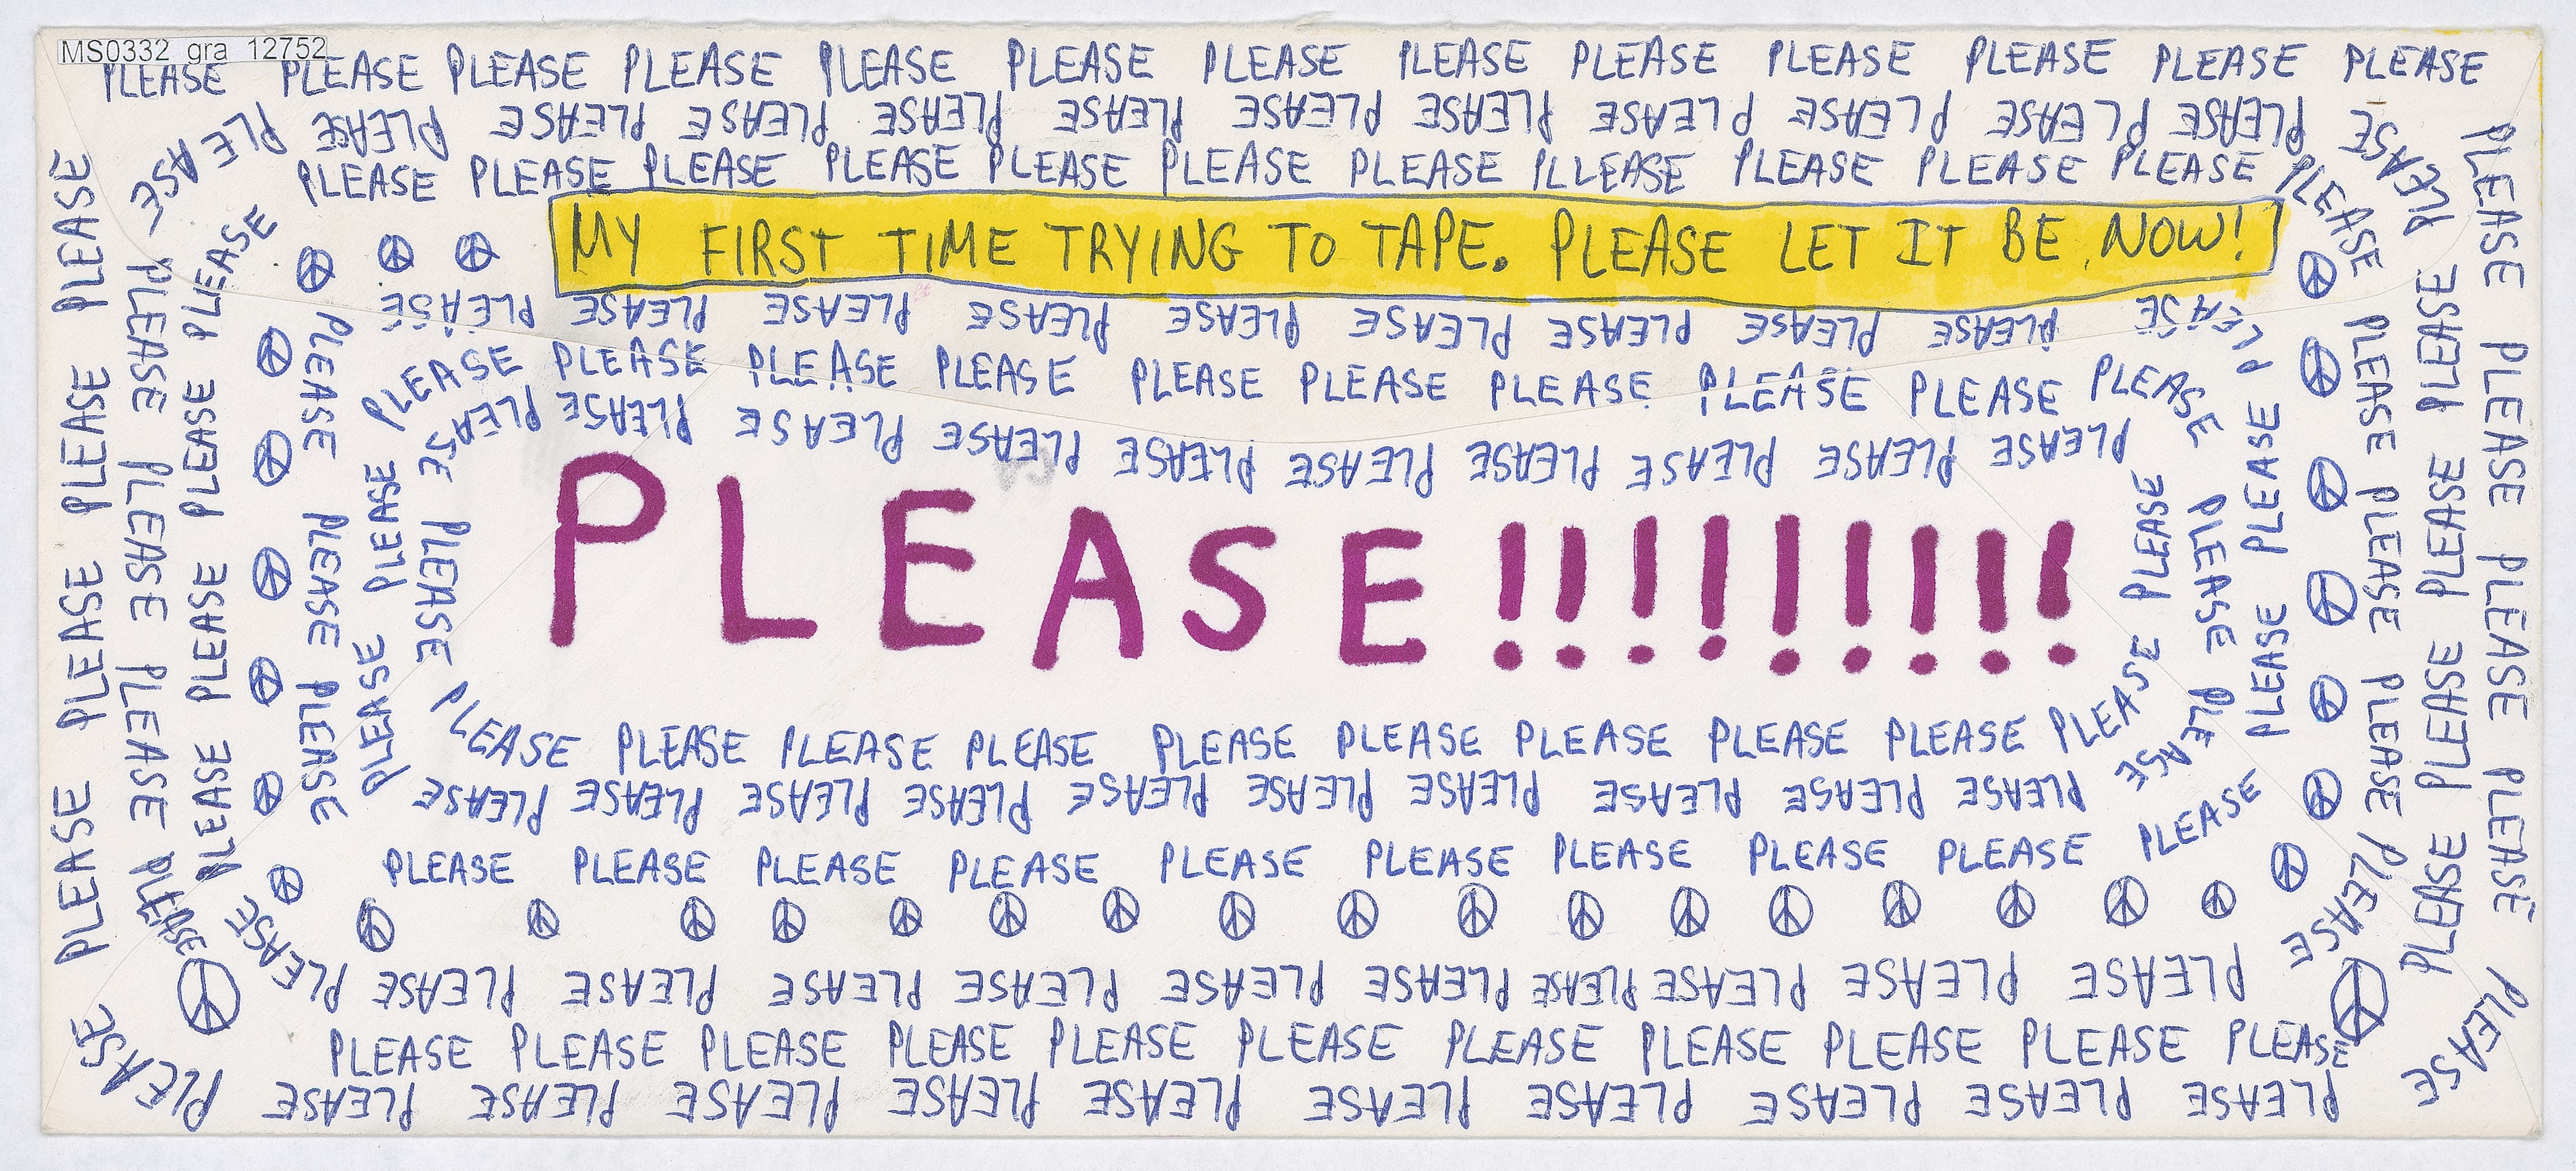 MS0332_gra_12752
PLEASE PLEASE PLEASE PLEASE PLEASE PLEASE PLEASE PLEASE PLEASE PLEASE PLEASE PLEASE PLEASE
PLEASE PLEASE PLEASE PLEASE PLEASE PLEASE PLEASE PLEASE PLEASE PLEASE PLEASE PLEASE PLEASE
PLEASE PLEASE PLEASE PLEASE PLEASE PLEASE PLEASE PLLEASE PLEASE PLEASE PLEASE
MY FIRST TIME TRYING TO TAPE. PLEASE LET IT BE NOW!
PLEASE PLEASE PLEASE PLEASE PLEASE PLEASE PLEASE PLEASE PLEASE PLEASE
PLEASE PLEASE PLEASE PLEASE PLEASE PLEASE PLEASE PLEASE PLEASE PLEASE
PLEASE PLEASE PLEASE PLEASE PLEASE PLEASE PLEASE PLEASE PLEASE PLEASE
PLEASE!!!!!!!!!
PLEASE PLEASE PLEASE PLEASE PLEASE PLEASE PLEASE PLEASE PLEASE PLEASE
PLEASE PLEASE PLEASE PLEASE PLEASE PLEASE PLEASE PLEASE PLEASE PLEASE
PLEASE PLEASE PLEASE PLEASE PLEASE PLEASE PLEASE PLEASE PLEASE PLEASE
PLEASE PLEASE PLEASE PLEASE PLEASE PLEASE PLEASE PLEASE PLEASE PLEASE PLEASE
PLEASE PLEASE PLEASE PLEASE PLEASE PLEASE PLEASE PLEASE PLEASE PLEASE PLEASE
PLEASE PLEASE PLEASE PLEASE PLEASE PLEASE PLEASE PLEASE PLEASE PLEASE PLEASE
PLEASE PLEASE PLEASE PLEASE
PLEASE PLEASE PLEASE PLEASE
PLEASE PLEASE PLEASE PLEASE
PLEASE PLEASE PLEASE
PLEASE PLEASE
PLEASE
PLEASE
PLEASE PLEASE
PLEASE PLEASE
PLEASE PLEASE PLEASE PLEASE PLEASE
PLEASE PLEASE PLEASE PLEASE
PLEASE PLEASE PLEASE PLEASE PLEASE